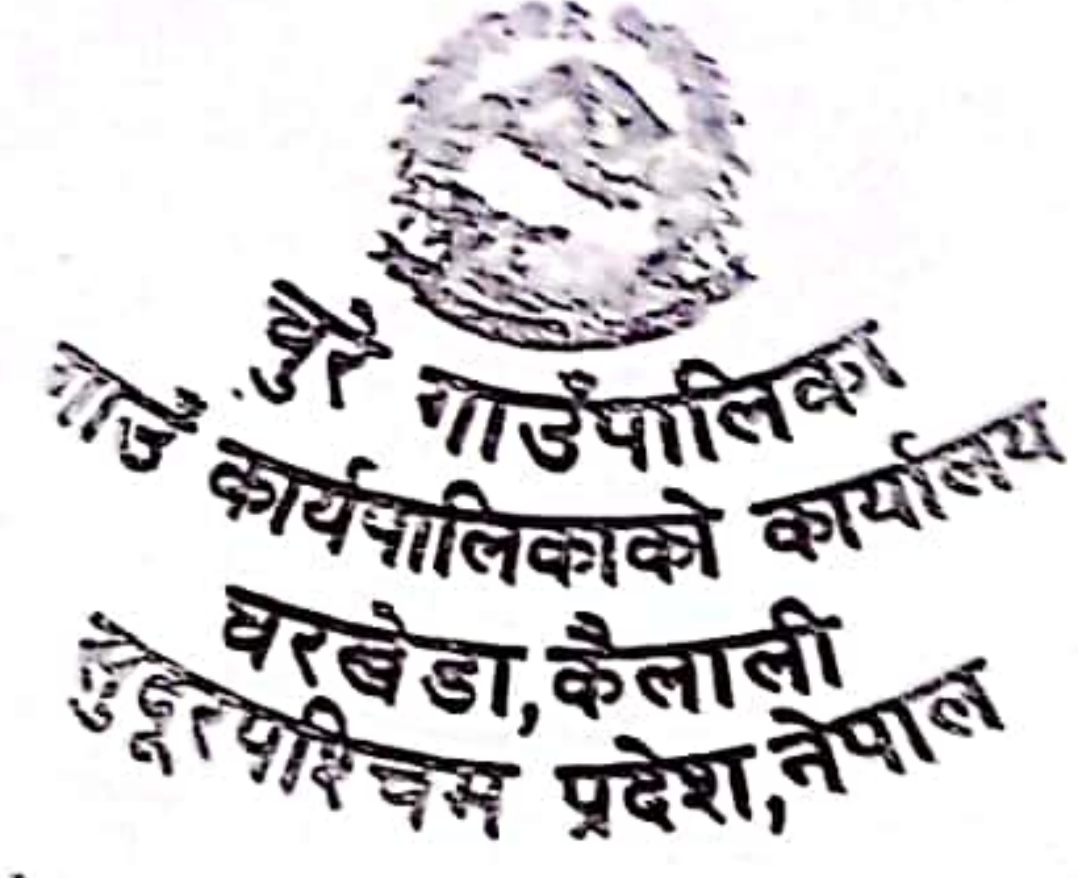 चुरे गाउँपालिका
गाउँ कार्यपालिकाको कार्यालय
घरखेडा,कैलाली
सुदूरपश्चिम प्रदेश,नेपाल